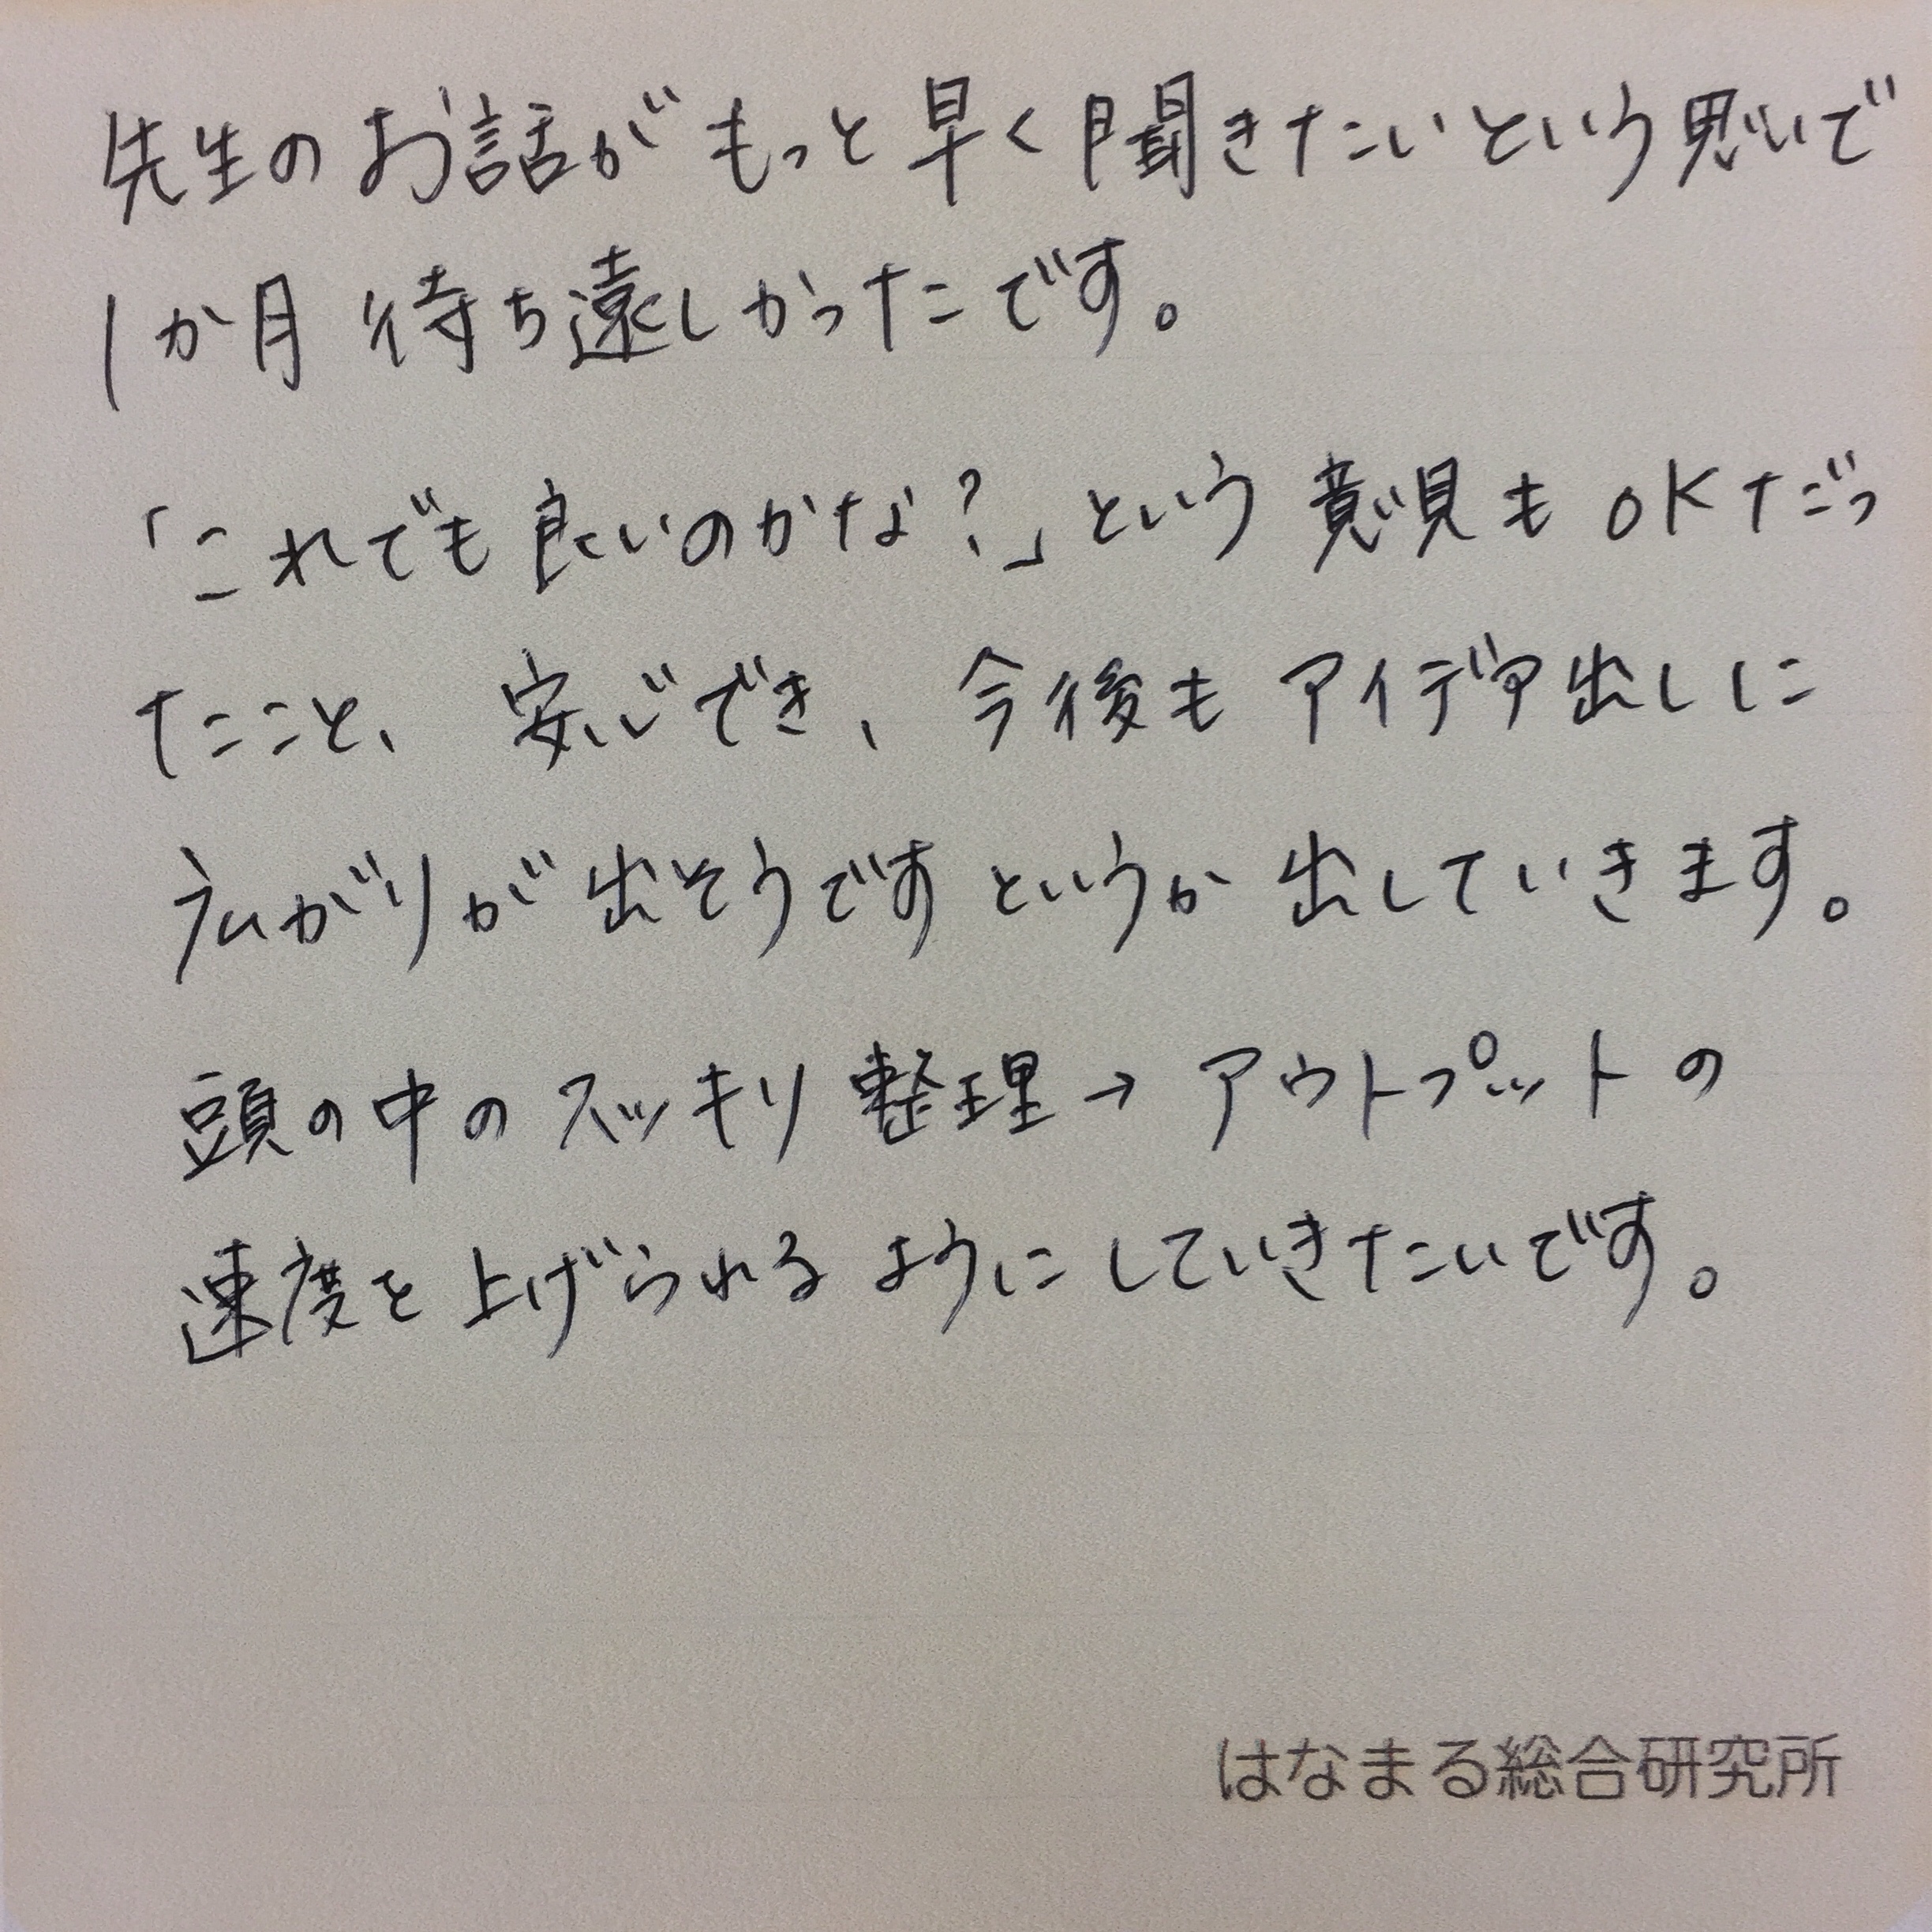 先生のお話がもっと早く聞きたいという思いで
1か月待ち遠しかったです。
「これでも良いのかな?」という意見もOKだっ
たこと、安心でき、今後もアイデア出しに
広がりが出そうですというか出していきます。
頭の中のスッキリ整理→アウトプットの
速度を上げられるようにしていきたいです。
はなまる総合研究所